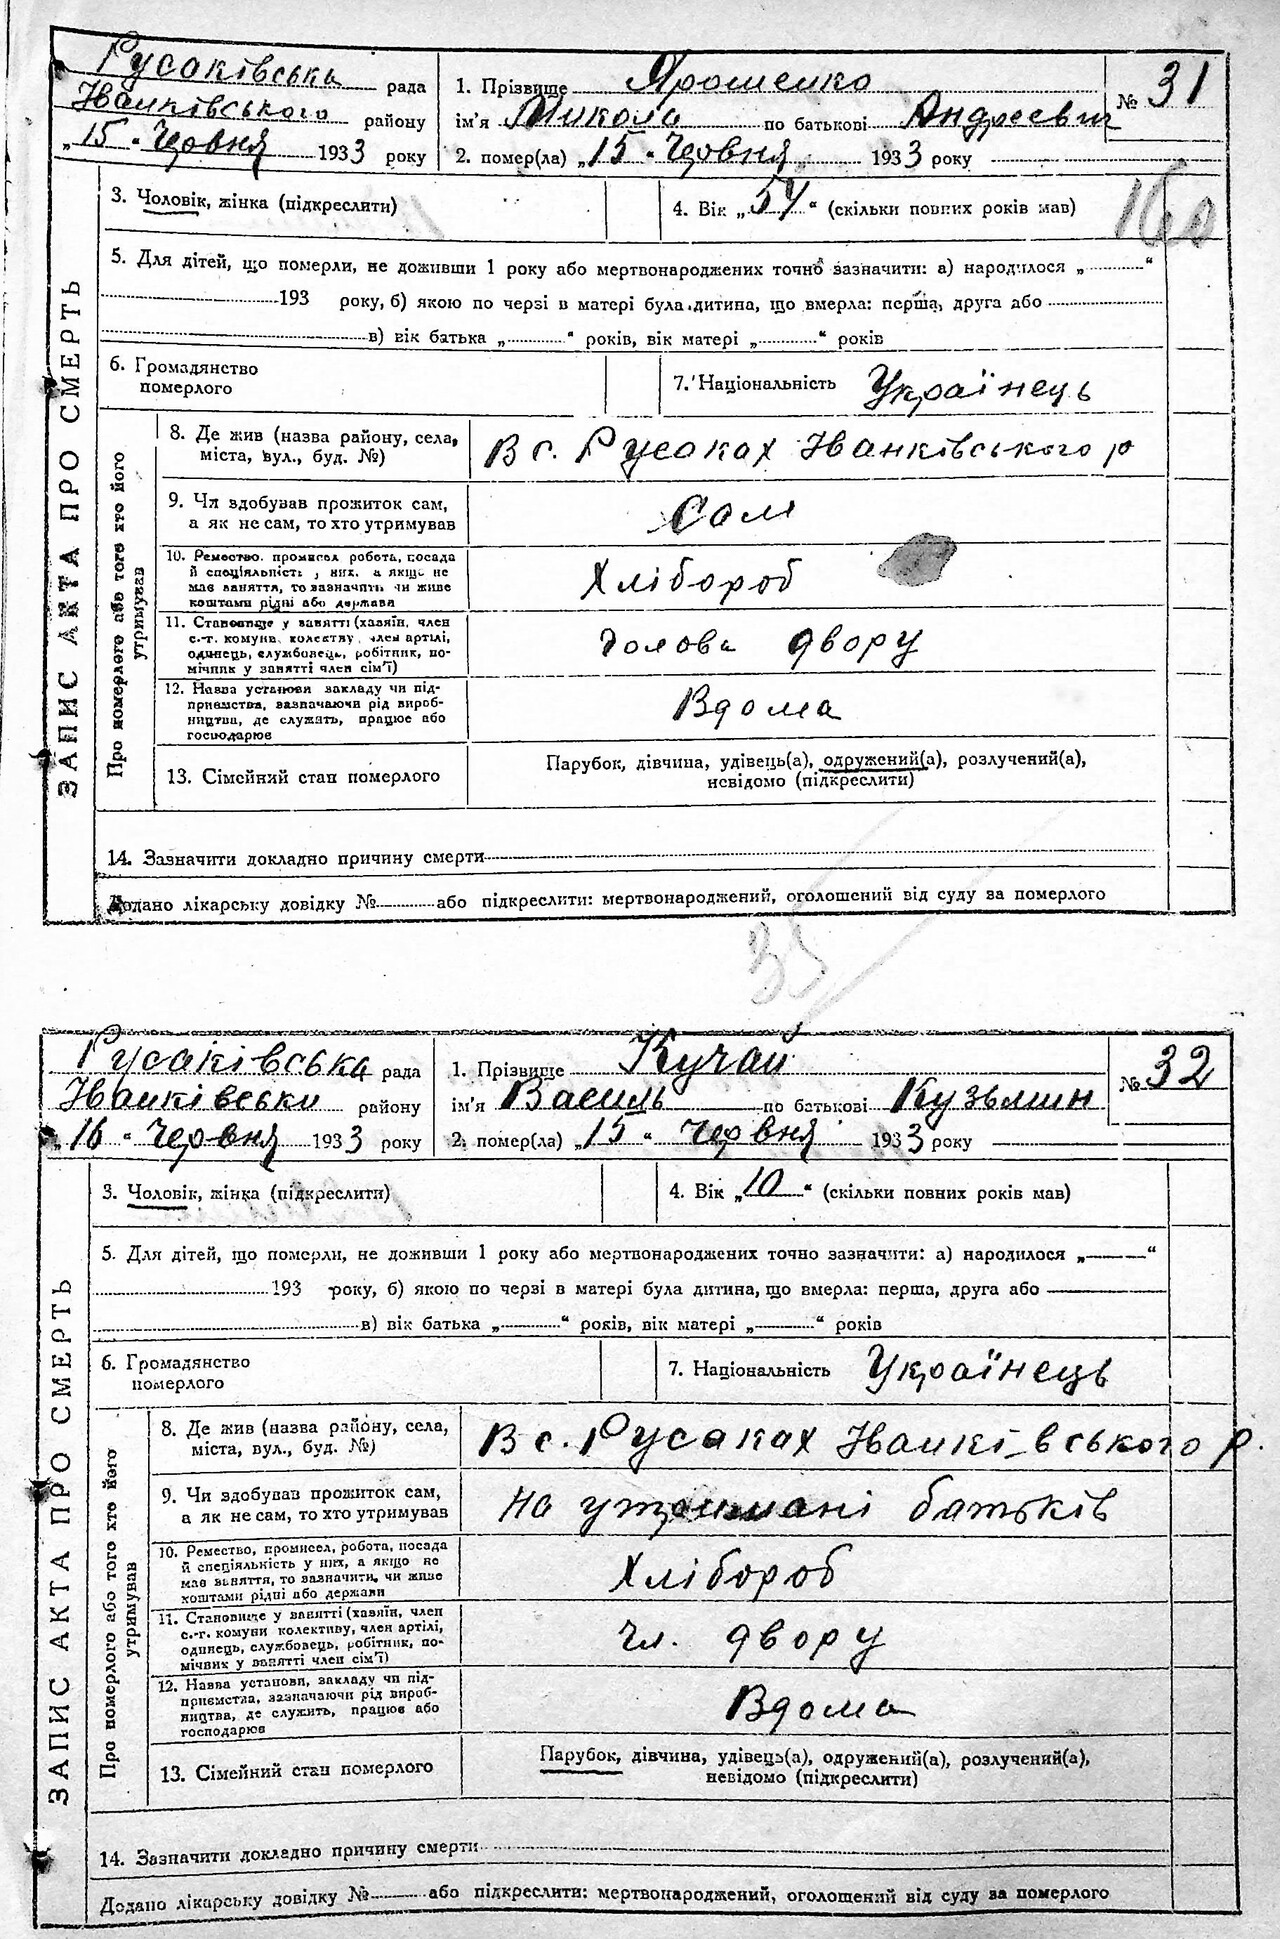 Русаківська рада
Іванківського району
„15“ Червня 1933 року
1. Прізвище Ярошенко
ім'я Микола по батькові Андреевич
2. помер(ла) „15“ Червня 1933 року
№ 31
160
3. Чоловік, жінка (підкреслити)
4. Вік „54“ (скільки повних років мав)
5. Для дітей, що померли, не доживши 1 року або мертвонароджених точно зазначити: а) народилося „ “
193 року, б) якою по черзі в матері була дитина, що вмерла: перша, друга або
в) вік батька „ “ років, вік матері „ “ років
6. Громадянство
померлого
7. Національність Українець
ЗАПИС АКТА ПРО СМЕРТЬ
Про померлого або того хто його
утримував
8. Де жив (назва району, села,
міста, вул., буд. №)
В с. Русаках Іванківського р
9. Чи здобував прожиток сам,
а як не сам, то хто утримував
Сам
10. Ремество, промисел, робота, посада
й спеціяльність у них, а якщо не
має заняття, то зазначить чи живе
коштами рідні або держави
Хлібороб
11. Становище у занятті (хазяїн, член
с.-г. комуни, колективу, член артілі,
одинець, службовець, робітник, по-
мічник у занятті член сім'ї)
Голова двору
12. Назва установи закладу чи під-
приємства, зазначаючи рід вироб-
ництва, де служить, працює або
господарює
Вдома
13. Сімейний стан померлого
Парубок, дівчина, удівець(а), одружений(а), розлучений(а),
невідомо (підкреслити)
14. Зазначити докладно причину смерти
Додано лікарську довідку № або підкреслити: мертвонароджений, оголошений від суду за померлого
35
Русаківська рада
Іванківськи району
„16“ Червня 1933 року
1. Прізвище Кучай
ім'я Василь по батькові Кузьмин
2. помер(ла) „15“ Червня 1933 року
№ 32
3. Чоловік, жінка (підкреслити)
4. Вік „10“ (скільки повних років мав)
5. Для дітей, що померли, не доживши 1 року або мертвонароджених точно зазначити: а) народилося „ “
193 року, б) якою по черзі в матері була дитина, що вмерла: перша, друга або
в) вік батька „ “ років, вік матері „ “ років
6. Громадянство
померлого
7. Національність Українець
ЗАПИС АКТА ПРО СМЕРТЬ
Про померлого або того хто його
утримував
8. Де жив (назва району, села,
міста, вул., буд. №)
В с. Русаках Іванківського р.
9. Чи здобував прожиток сам,
а як не сам, то хто утримував
На утримані батьків
10. Ремество, промисел, робота, посада
й спеціяльність у них, а якщо не
має заняття, то зазначити, чи живе
коштами рідні або держави
Хлібороб
11. Становище у занятті (хазяїн, член
с.-г. комуни колективу, член артілі,
одинець, службовець, робітник, по-
мічник у занятті член сім'ї)
Чл. двору
12. Назва установи, закладу чи під-
приємства, зазначаючи рід вироб-
ництва, де служить, працює або
господарює
Вдома
13. Сімейний стан померлого
Парубок, дівчина, удівець(а), одружений(а), розлучений(а),
невідомо (підкреслити)
14. Зазначити докладно причину смерти
Додано лікарську довідку № або підкреслити: мертвонароджений, оголошений від суду за померлого